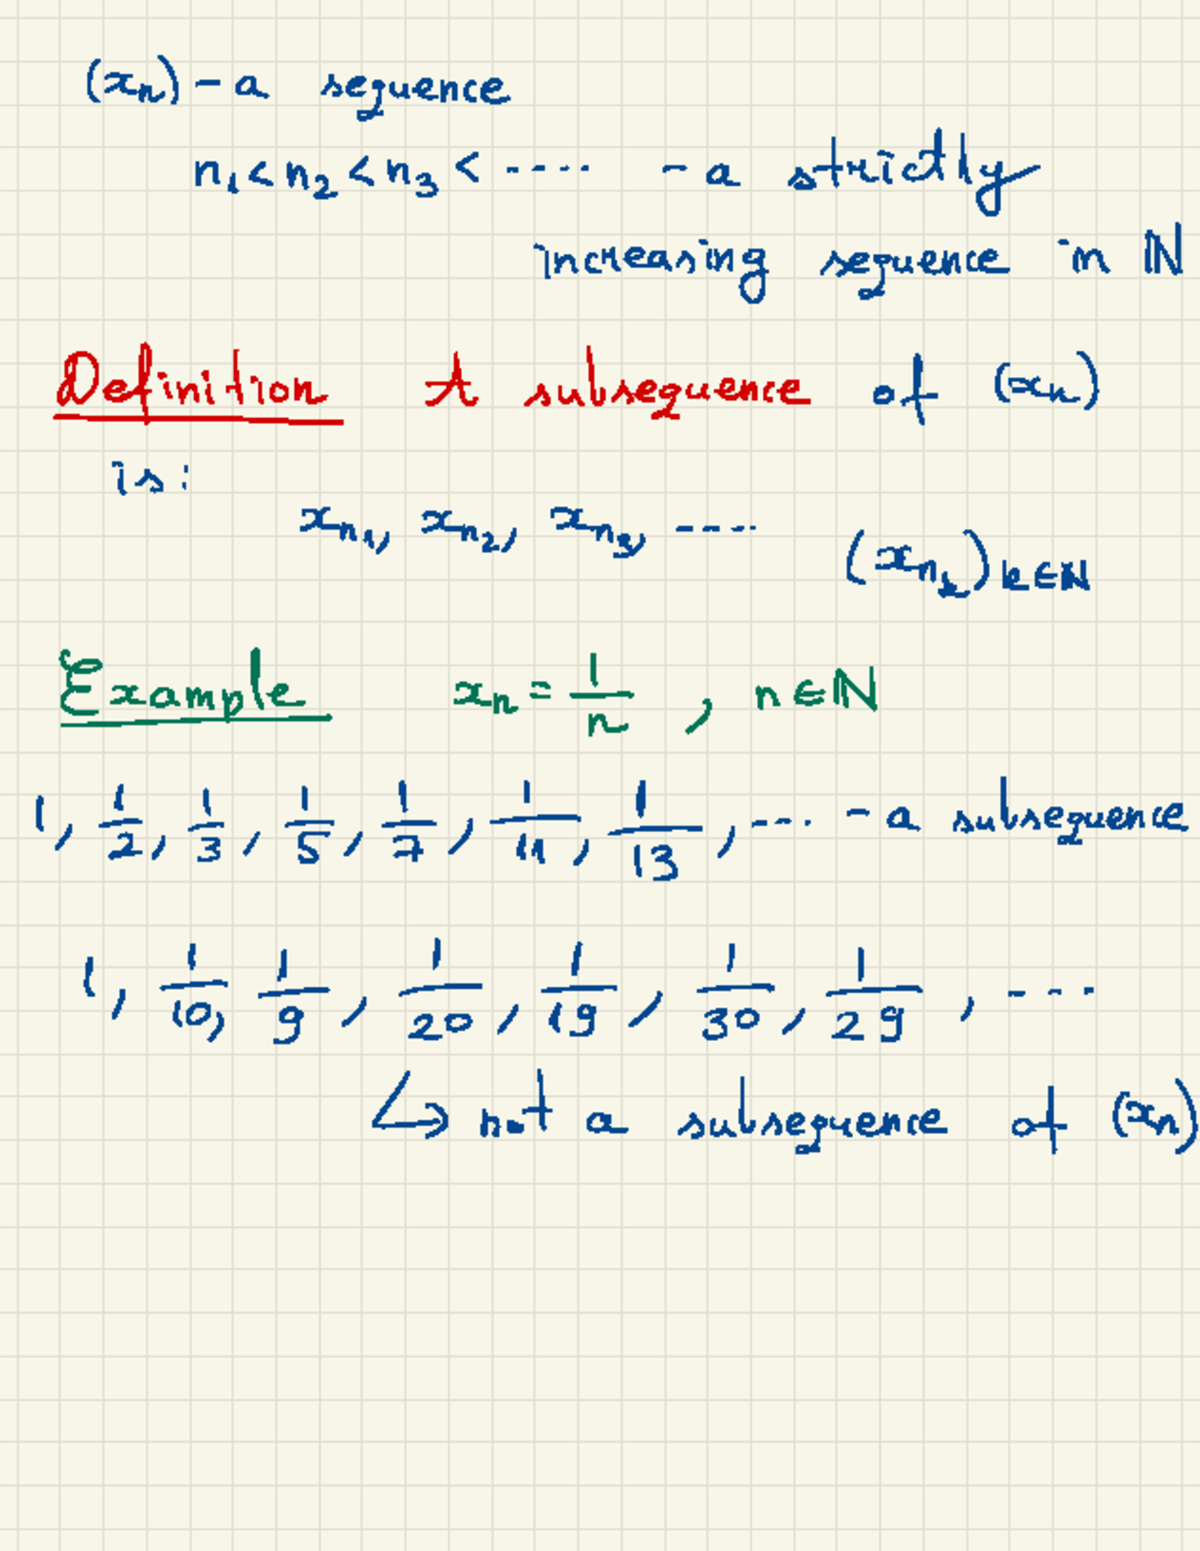 (xₙ) - a sequence
n₁ < n₂ < n₃ < ····· - a strictly
increasing sequence in ℕ
Definition A subsequence of (xₙ)
is:
x_{n₁}, x_{n₂}, x_{n₃}, ····· (x_{n_k})_{k∈ℕ}
Example xₙ = 1/n , n ∈ ℕ
1, 1/2, 1/3, 1/5, 1/7, 1/11, 1/13, ···· - a subsequence
1, 1/10, 1/9, 1/20, 1/19, 1/30, 1/29, ····
↳ not a subsequence of (xₙ)